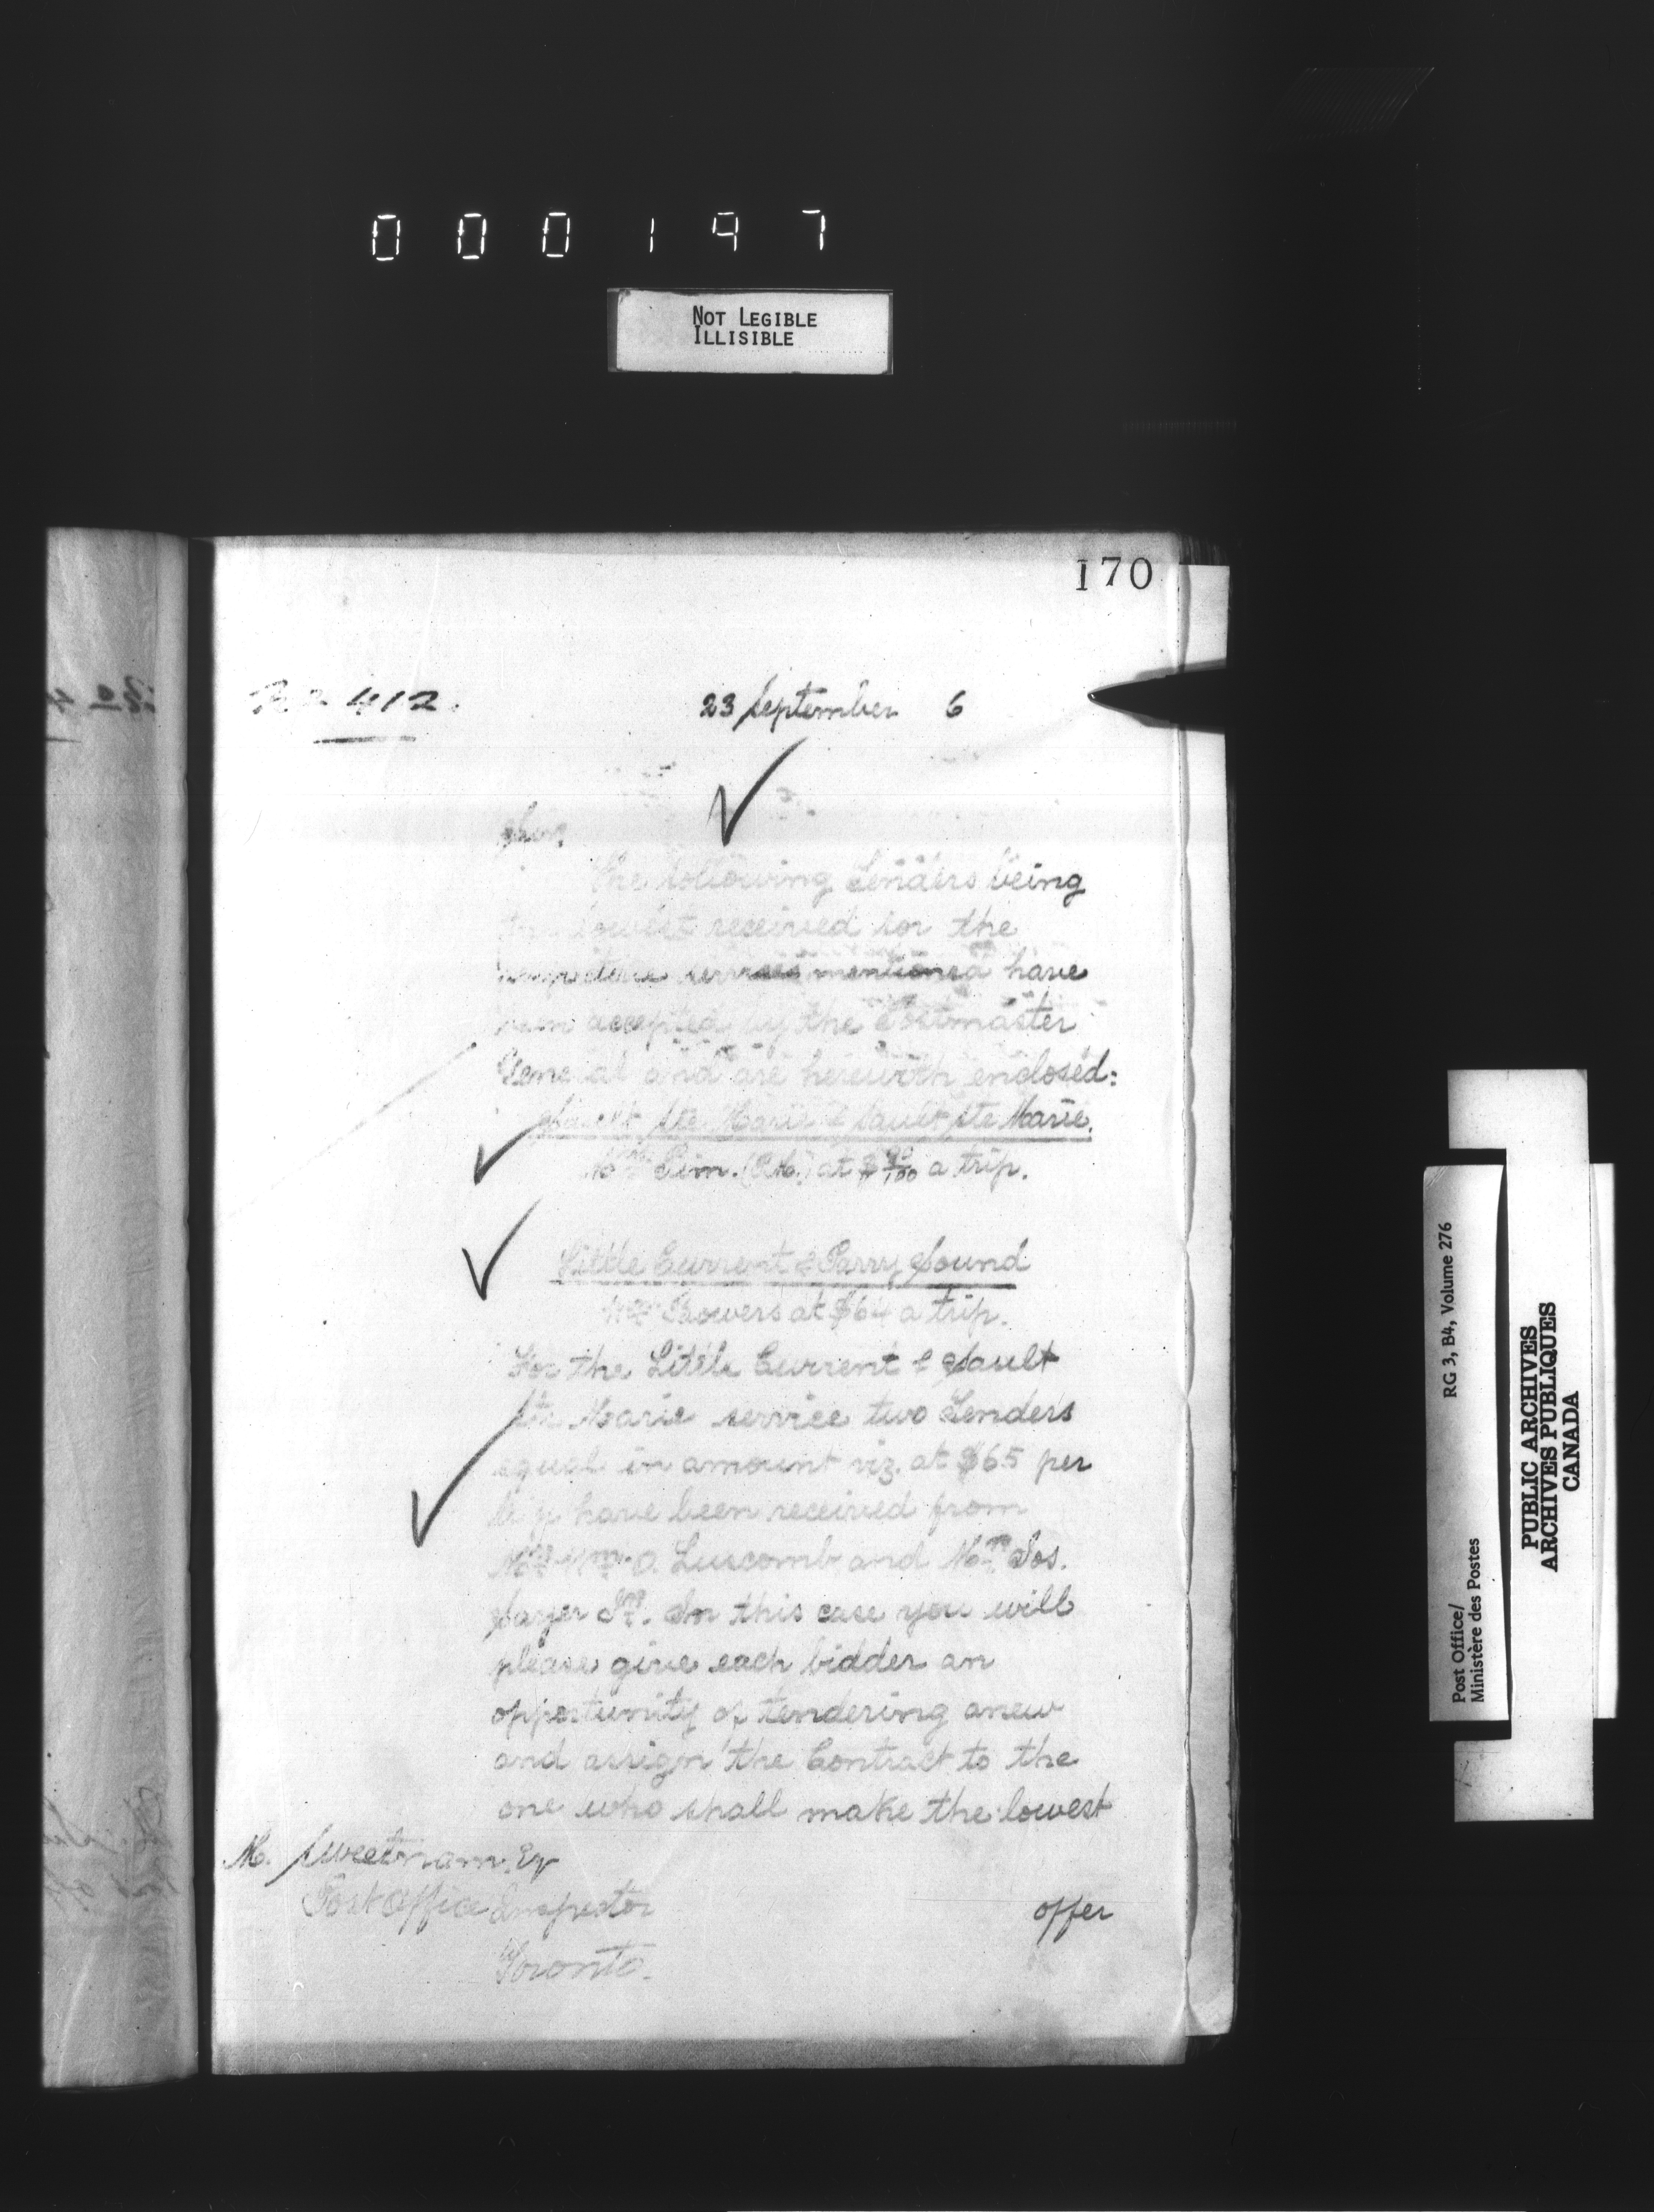 000197
NOT LEGIBLE
ILLISIBLE
170
No 412.
23 September 6
Sir,
The following Tenders being
the lowest received for the
respective services mentioned have
been accepted by the Postmaster
General and are herewith enclosed:
Sault Ste Marie & Sault Ste Marie.
Pim. (P.M.) at $ 90/100 a trip.
Little Current & Parry Sound
Wm Bowers at $64 a trip.
For the Little Current & Sault
Ste Marie service two Tenders
equal in amount viz. at $65 per
trip have been received from
Mr Wm O. Luscomb and Mr Jos.
Sayer Jnr. In this case you will
please give each bidder an
opportunity of tendering anew
and assign the Contract to the
one who shall make the lowest
M. Sweetnam, Esq
Post Office Inspector
Toronto.
offer
Post Office/
Ministère des Postes
RG 3, B4, Volume 276
PUBLIC ARCHIVES
ARCHIVES PUBLIQUES
CANADA